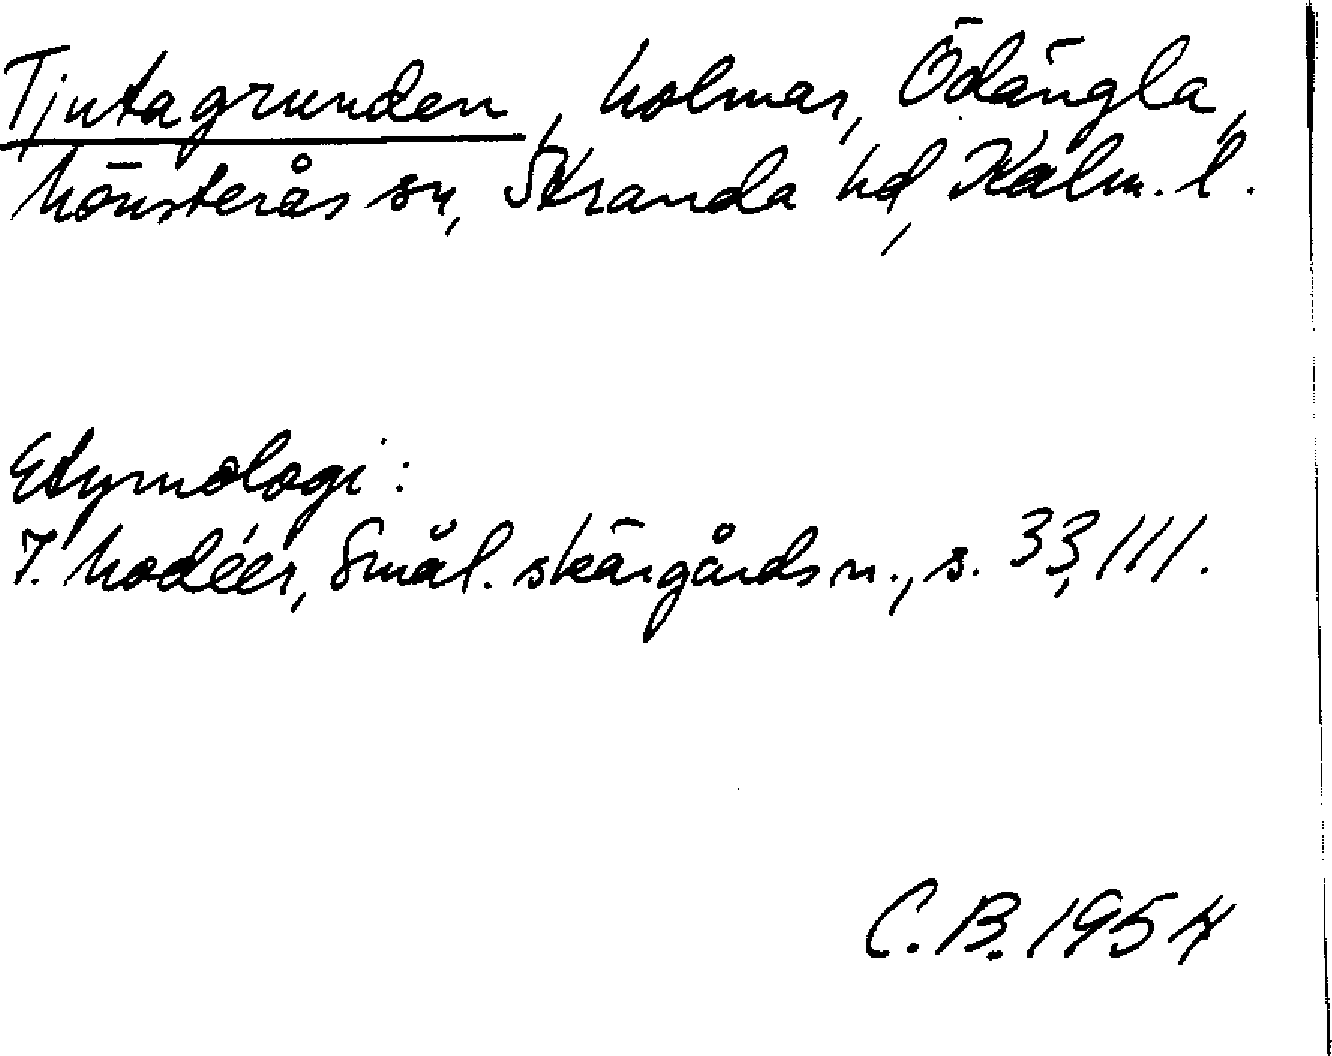 Tjutagrunden, holmar, Ödängla,
Mönsterås sn, Stranda hd, Kalm. l.
Etymologi:
I. Modéer, Smål. skärgårdsn., s. 33, 111.
C. B. 1954